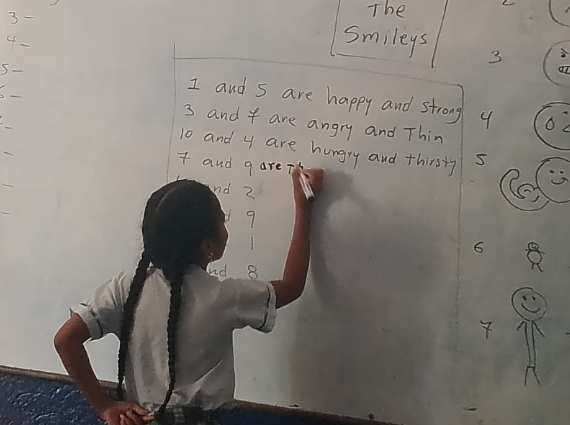 The
Smileys
3 -
4 -
5 -
6 -
1 and 5 are happy and strong
3 and 7 are angry and Thin
10 and 4 are hungry and thirsty
7 and 9 are
nd 2
9
1
nd 8
3
4
5
6
7